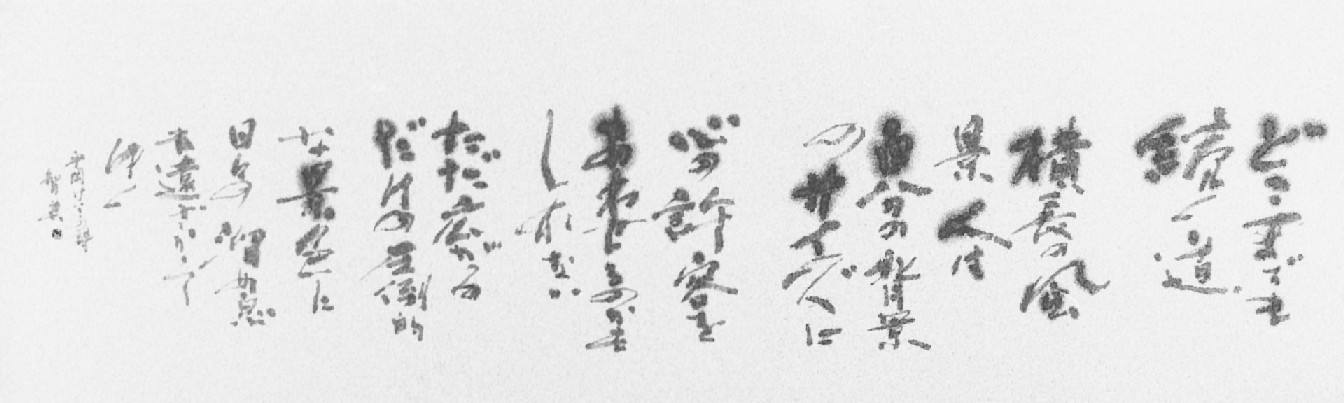 どこまでも
続く道
横長の風
景 人は
自分の背景
のサイズに
心の許容を
あわせるのかも
しれない
ただ広がる
だけの圧倒的
な景色に
日々の
遠ざかって